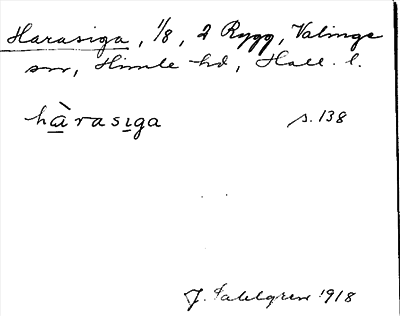 Harasiga, 1/8, 2 Rygg, Valinge
sn, Himle hd, Hall. l.
hàrasiga s. 138
J. Sahlgren 1918